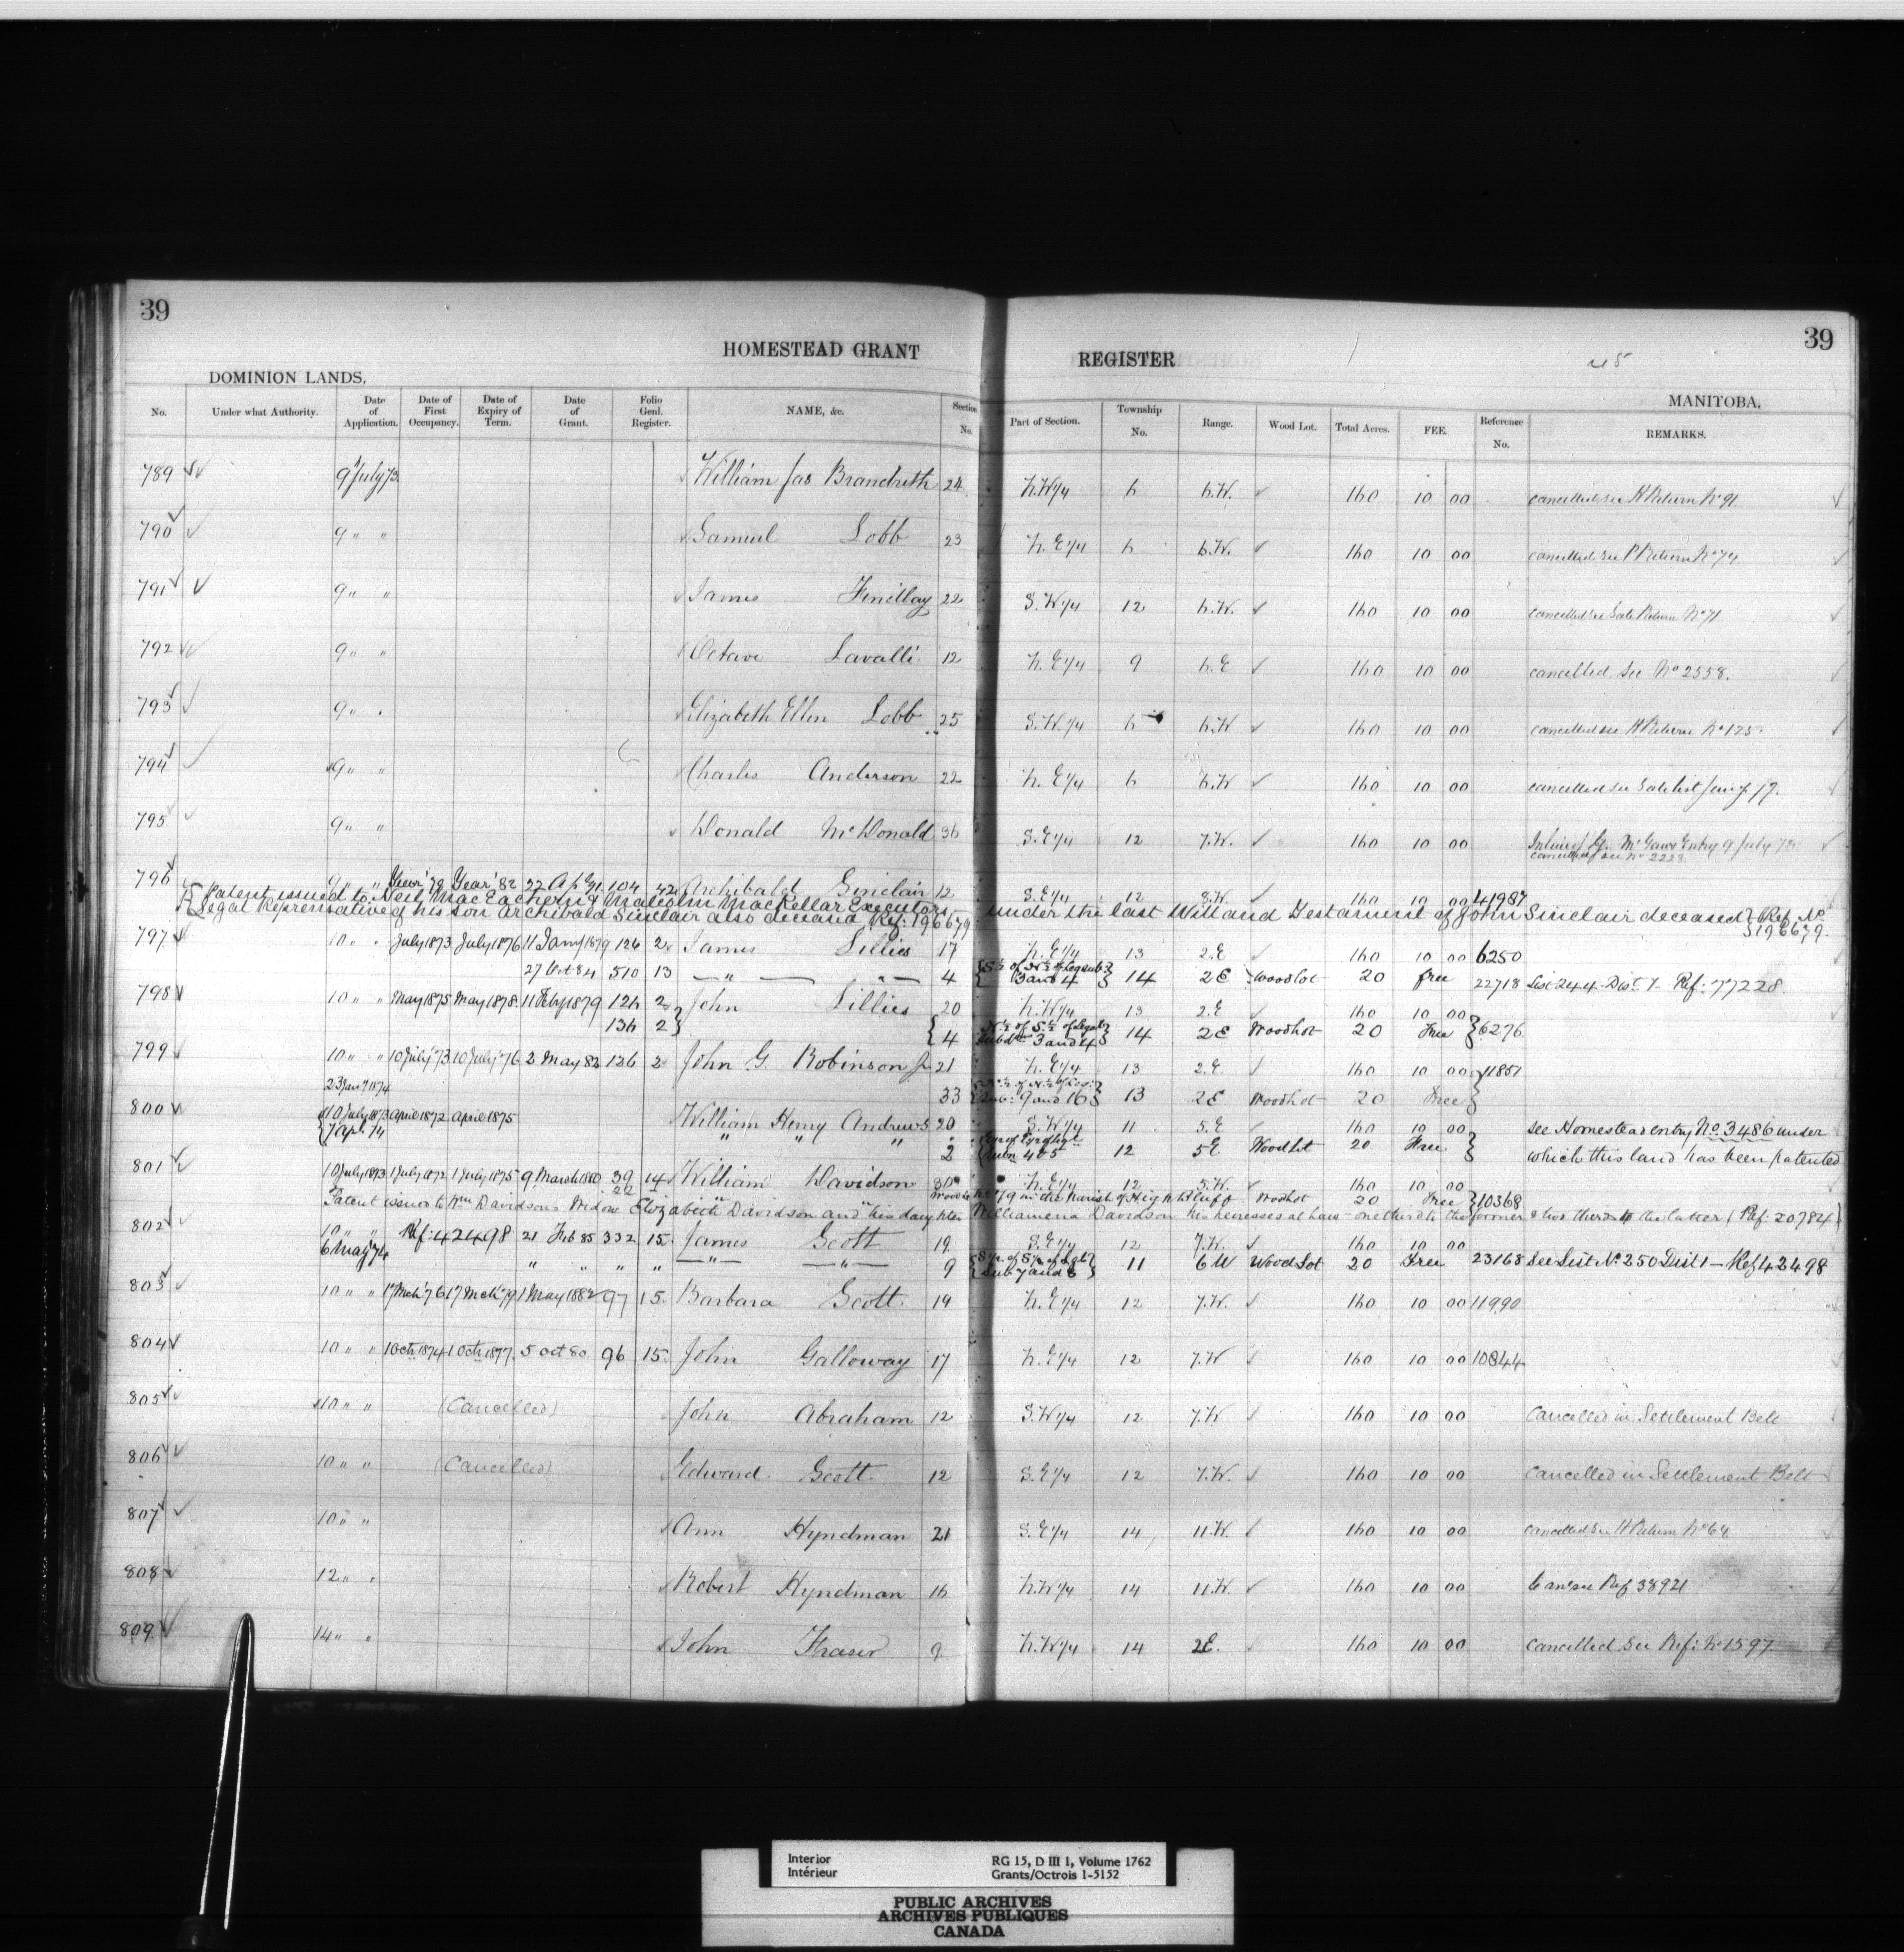 39
39
HOMESTEAD GRANT REGISTER
DOMINION LANDS.
MANITOBA.
No. Under what Authority. Date of Application. Date of First Occupancy. Date of Expiry of Term. Date of Grant. Folio Genl. Register. NAME, &c. Section No. Part of Section. Township No. Range. Wood Lot. Total Acres. FEE. Reference No. REMARKS.
789 9 July 73 William Jas Brandrith 24 N.W 1/4 6 6.W. 160 10 00 cancelled see H Return No 91
790 9 " " Samuel Lobb 23 N.E 1/4 6 6.W. 160 10 00 cancelled see Return No 74
791 9 " " James Findlay 22 S.W 1/4 12 6.W. 160 10 00 cancelled see Sale Return No 71
792 9 " " Octave Lavalli 12 N.E 1/4 9 6.E 160 10 00 cancelled See No 2558.
793 9 " " Elizabeth Ellen Lobb 25 S.W. 1/4 6 6.W 160 10 00 cancelled see H Return No 125.
794 9 " " Charles Anderson 22 N.E 1/4 6 6.W 160 10 00 cancelled see Sale list
795 9 " " Donald McDonald 36 S.E 1/4 12 7.W. 160 10 00 Entry 9 July 73
cancelled see No 2223
796 9 " " Year '79 Year '82 22 Ap 91 104 42 Archibald Sinclair 12 S.E 1/4 12 8.W. 160 10 00 41987
Patent issued to Neil MacEachern & Malcolm MacKellar Executors under the last Will and Testament of John Sinclair deceased Ref. No 196679.
Legal Representative of his son Archibald Sinclair also deceased Ref: 196679
797 10 " " July 1873 July 1876 11 Jany 1879 126 2 James Lillies 17 N.E 1/4 13 2.E 160 10 00 6250
27 Oct 84 510 13 — " — — " — 4 S 1/2 of N 1/2 of Leg sub: 3 and 4 14 2E Woodlot 20 free 22718 List 244 Dist. 1 - Ref: 77228.
798 10 " " May 1875 May 1878 11 Feby 1879 126 2 John Lillies 20 N.W 1/4 13 2.E 160 10 00
136 2 4 N 1/2 of S 1/2 of Legal Subdns 3 and 4 14 2E Woodlot 20 Free 6276
799 10 " " 10 July '73 10 July '76 2 May 82 126 2 John G Robinson Jr 21 N.E 1/4 13 2.E. 160 10 00 11851
23 Jany 1874 33 Sub: 9 and 16 13 2E Woodlot 20 Free
800 10 July 1873 April 1872 April 1875 William Henry Andrews 20 S.W 1/4 11 5.E 160 10 00 see Homestead entry No. 3486 under
7 Apl. 74 " " " 2 4 & 5 12 5E. Wood Lot 20 Free which this land has been patented
801 10 July 1873 1 July 1872 1 July 1875 9 March 1880 39 14 William Davidson 30 N.E 1/4 12 5.W. 160 10 00
22 Woodlot No 19 in the Parish of High Bluff Woodlot 20 Free 10368
Patent issued to Wm Davidson's Widow Elizabeth Davidson and his daughter Williamena Davidson his heiresses at law - one third to the former & two thirds to the latter (Ref: 20784)
802 10 " " Ref: 42498 21 Feb 85 332 15 James Scott 19 S.E 1/4 12 7.W. 160 10 00
6 May 74 " " " " — " — — " — 9 Sub 7 and 8 11 6W Wood Lot 20 Free 23168 See List No. 250 Dist 1 — Ref 42498
803 10 " " 17 Mch '76 17 Mch '79 1 May 1882 97 15 Barbara Scott 19 N.E 1/4 12 7.W. 160 10 00 11990
804 10 " " 1 Oct 1874 1 Oct 1877 5 Oct 80 96 15 John Galloway 17 N.E 1/4 12 7.W 160 10 00 10844
805 10 " " (Cancelled) John Abraham 12 S.W 1/4 12 7.W 160 10 00 Cancelled in Settlement Belt
806 10 " " (Cancelled) Edward Scott 12 S.E 1/4 12 7.W. 160 10 00 Cancelled in Settlement Belt
807 10 " " Ann Hyndman 21 S.E 1/4 14 11.W. 160 10 00 cancelled see H Return No 64
808 12 " " Robert Hyndman 16 N.W 1/4 14 11.W. 160 10 00 Can see Ref 38921
809 14 " " John Fraser 9 N.W 1/4 14 2E. 160 10 00 Cancelled See Ref: No 1597
Interior
Intérieur
RG 15, D III 1, Volume 1762
Grants/Octrois 1-5152
PUBLIC ARCHIVES
ARCHIVES PUBLIQUES
CANADA